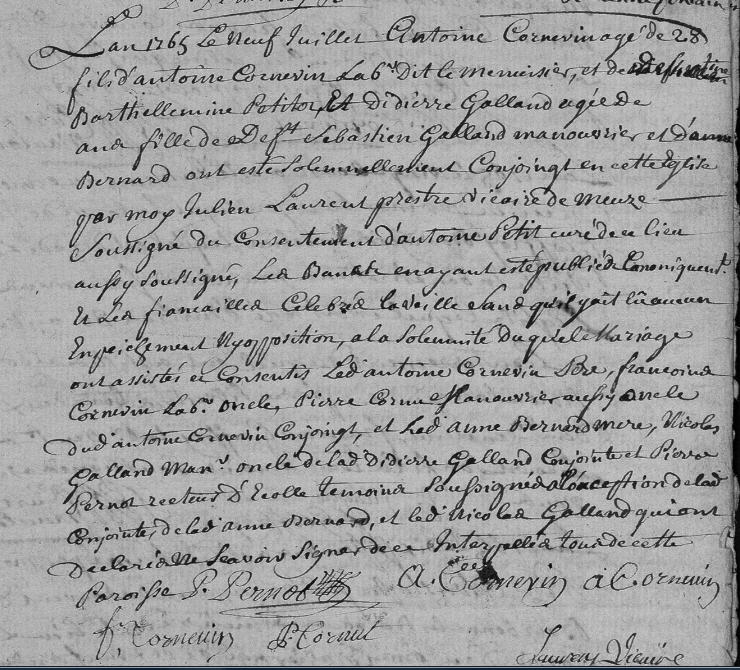 L'an 1765 Le Neuf Juillet Antoine Cornevin agé de 28
fils d'antoine Cornevin Lab.r Dit le menuisier, et de
Barthellemine Petitot, Et didierre Galland agée de
ans fille de Deft Sebastien Galland manouvrier et d'anne
Bernard ont esté Solemnellement Conjoingt en cette Eglise
par moy Julien Laurent prestre vicaire de meuze
Soussigné du Consentement d'antoine Petit curé de ce lieu
aussy Soussigné, Les Bancts en ayant esté publiés Canoniquemt.
Et Les fiancailles Celebrés la veille Sans qu'il y ait û aucun
Enpeichement Ny opposition, a la Solemnité duquel Mariage
ont assistés et Consentis Led antoine Cornevin Pere, francois
Cornevin Lab.r oncle, Pierre Cornu Manouvrier aussy oncle
dud antoine Cornevin Conjoingt, et Lad anne Bernard mere, Nicolas
Galland Man.r oncle de lad Didierre Galland Conjointe et Pierre
Pernot recteur d'Ecolle temoins Soussignés a l'exception de lad
Conjointe, de lad anne Bernard, et led Nicolas Galland qui ont
declarés Ne Scavoir Signer de ce Interpellés tous de cette
Paroisse P. Pernot A. Cornevin a Cornevin
f. Cornevin P Cornut
Laurens Vicaire